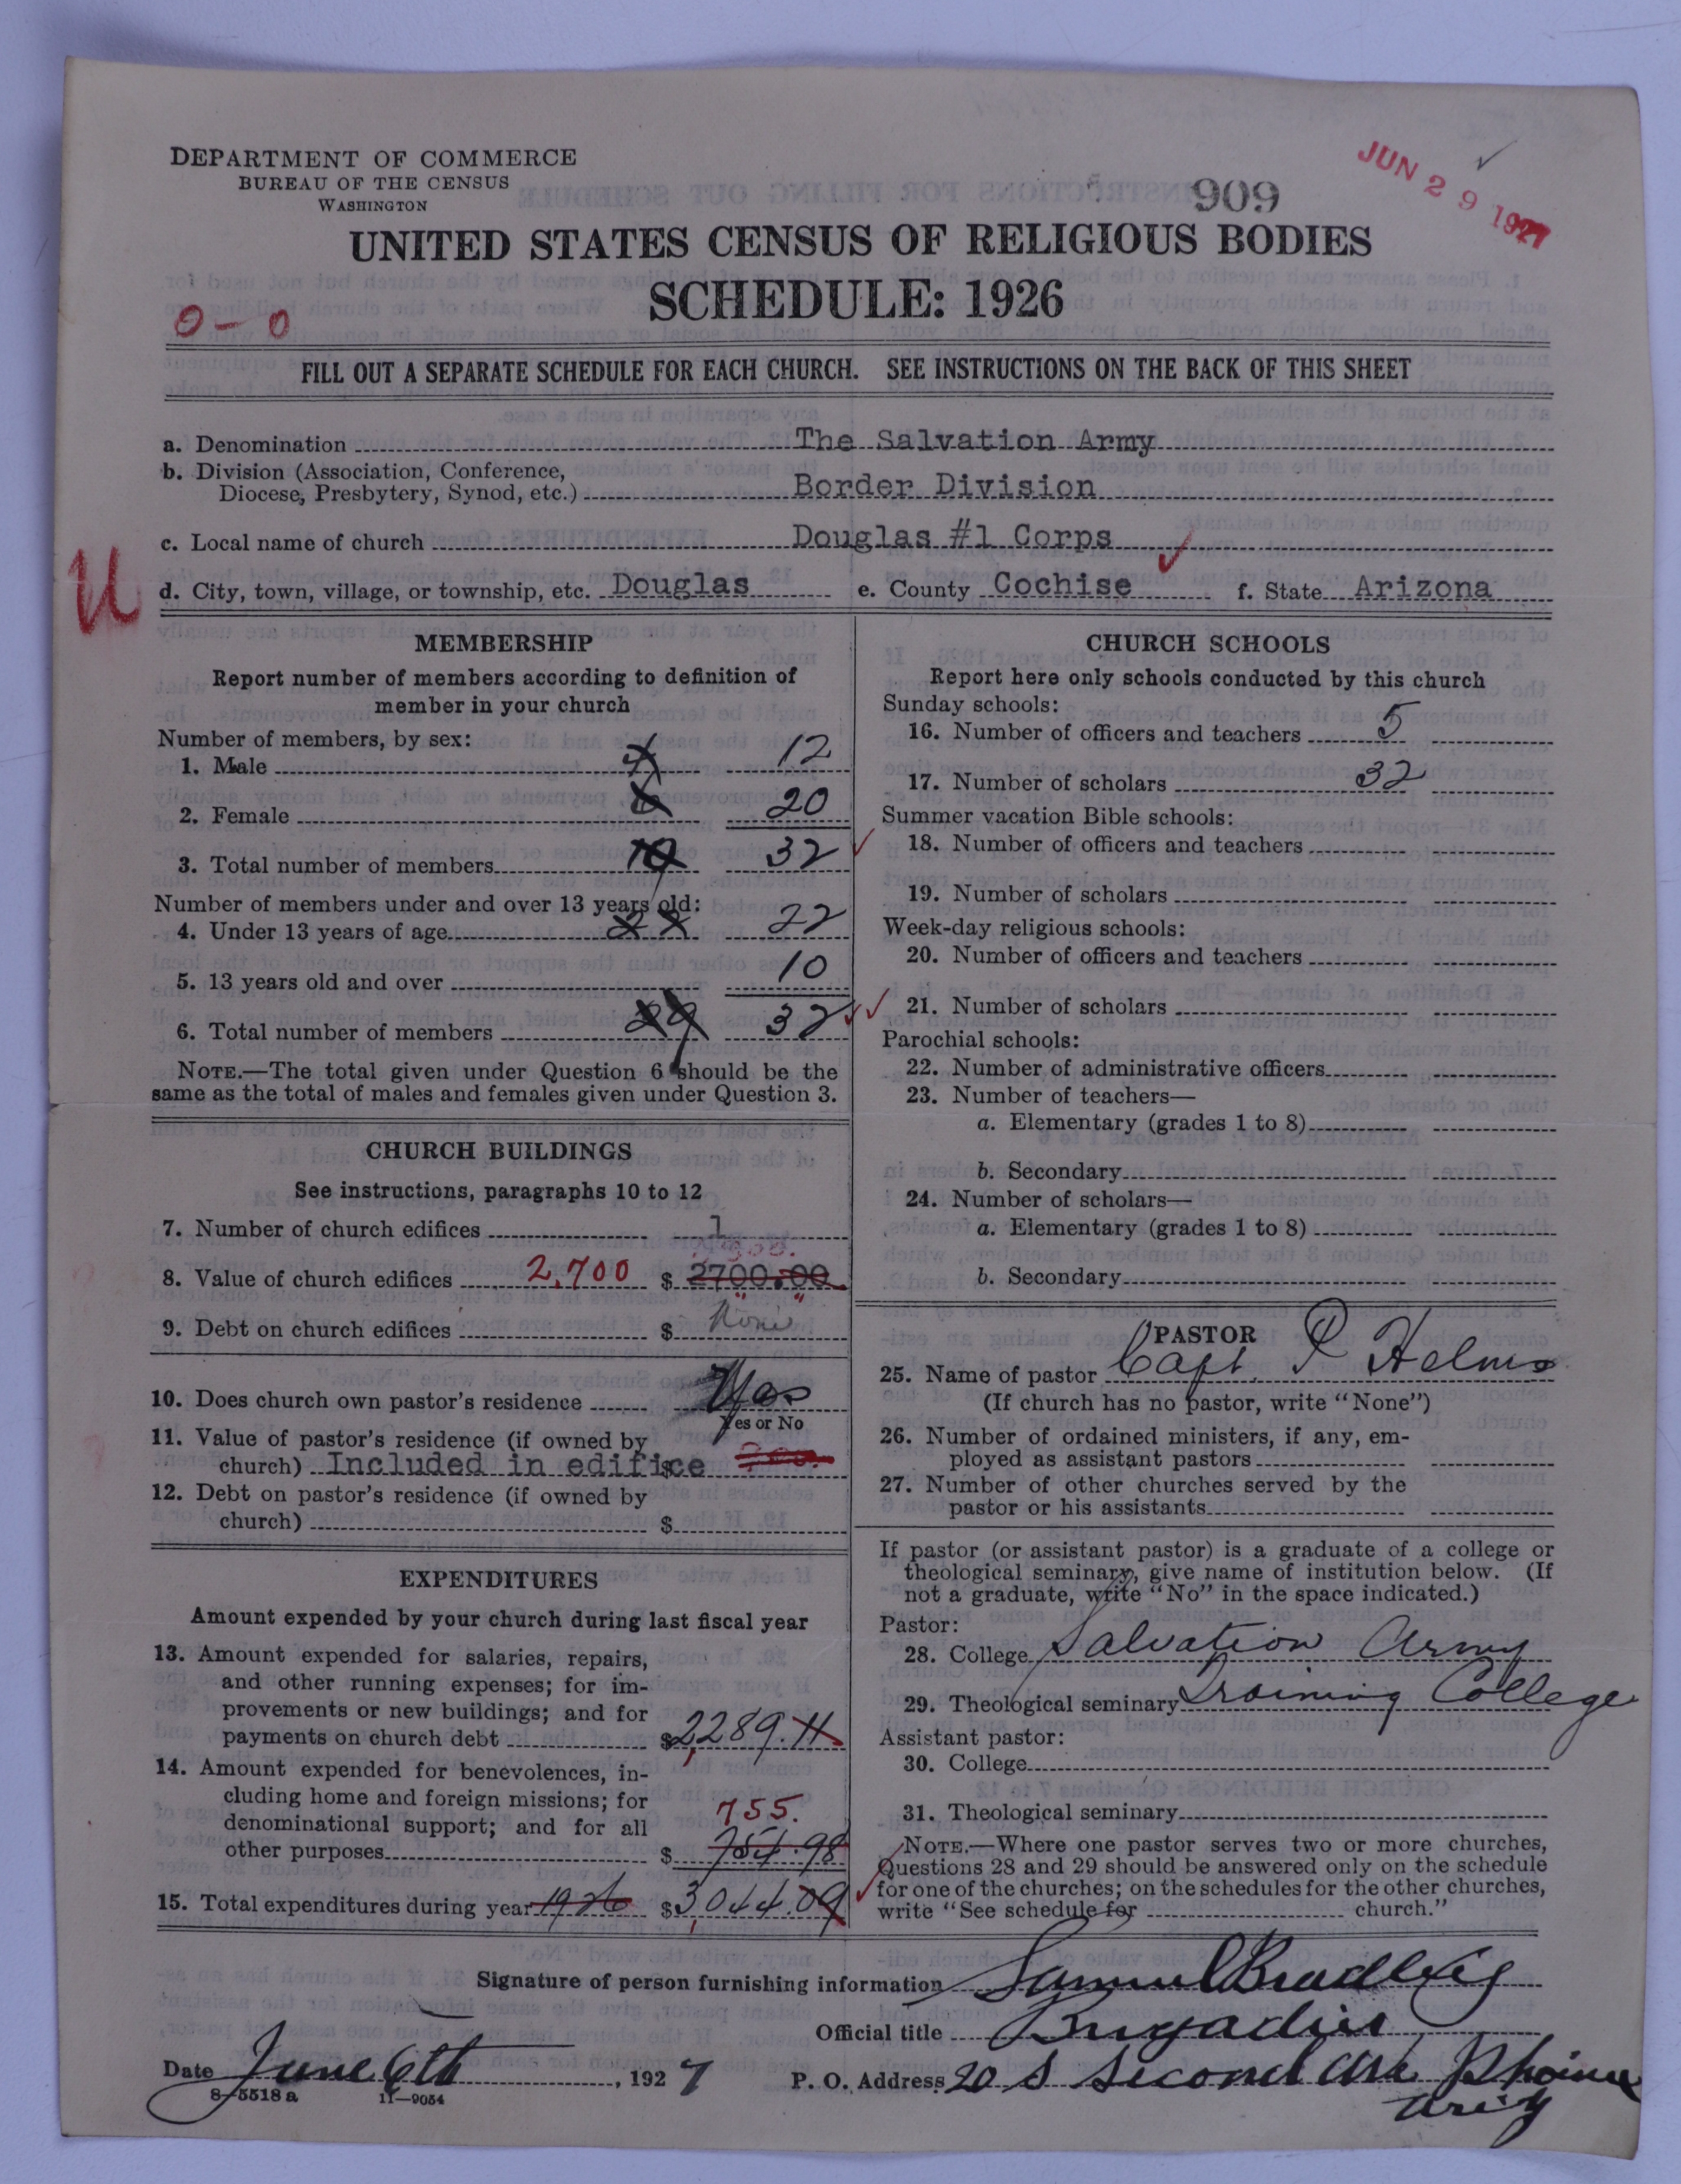 DEPARTMENT OF COMMERCE
BUREAU OF THE CENSUS
WASHINGTON
909
JUN 29 1927
UNITED STATES CENSUS OF RELIGIOUS BODIES
SCHEDULE: 1926
0 - 0
FILL OUT A SEPARATE SCHEDULE FOR EACH CHURCH. SEE INSTRUCTIONS ON THE BACK OF THIS SHEET
a. Denomination The Salvation Army
b. Division (Association, Conference,
Diocese, Presbytery, Synod, etc.) Border Division
c. Local name of church Douglas #1 Corps
U
d. City, town, village, or township, etc. Douglas e. County Cochise f. State Arizona
MEMBERSHIP
Report number of members according to definition of
member in your church
Number of members, by sex:
1. Male 4 12
2. Female 6 20
3. Total number of members 10 32
Number of members under and over 13 years old:
4. Under 13 years of age 22
5. 13 years old and over 10
6. Total number of members 29 32
NOTE.—The total given under Question 6 should be the
same as the total of males and females given under Question 3.
CHURCH BUILDINGS
See instructions, paragraphs 10 to 12
7. Number of church edifices 1
8. Value of church edifices 2,700 $ 2700.00
9. Debt on church edifices $ None
10. Does church own pastor's residence Yes
Yes or No
11. Value of pastor's residence (if owned by
church) Included in edifice $
12. Debt on pastor's residence (if owned by
church) $
EXPENDITURES
Amount expended by your church during last fiscal year
13. Amount expended for salaries, repairs,
and other running expenses; for im-
provements or new buildings; and for
payments on church debt $2,289.11
14. Amount expended for benevolences, in-
cluding home and foreign missions; for
denominational support; and for all 755.
other purposes $ 754.98
15. Total expenditures during year 1926 $3,044.09
CHURCH SCHOOLS
Report here only schools conducted by this church
Sunday schools:
16. Number of officers and teachers 5
17. Number of scholars 32
Summer vacation Bible schools:
18. Number of officers and teachers
19. Number of scholars
Week-day religious schools:
20. Number of officers and teachers
21. Number of scholars
Parochial schools:
22. Number of administrative officers
23. Number of teachers—
a. Elementary (grades 1 to 8)
b. Secondary
24. Number of scholars—
a. Elementary (grades 1 to 8)
b. Secondary
PASTOR
25. Name of pastor Capt. P Helms
(If church has no pastor, write "None")
26. Number of ordained ministers, if any, em-
ployed as assistant pastors
27. Number of other churches served by the
pastor or his assistants
If pastor (or assistant pastor) is a graduate of a college or
theological seminary, give name of institution below. (If
not a graduate, write "No" in the space indicated.)
Pastor:
28. College Salvation Army
29. Theological seminary Training College
Assistant pastor:
30. College
31. Theological seminary
NOTE.—Where one pastor serves two or more churches,
Questions 28 and 29 should be answered only on the schedule
for one of the churches; on the schedules for the other churches,
write "See schedule for church."
Signature of person furnishing information Samuel Bradley
Official title Brigadier
Date June 6th, 1927 P. O. Address 20 S Second ave Phoenix
Ariz
8-5518 a 11—9054